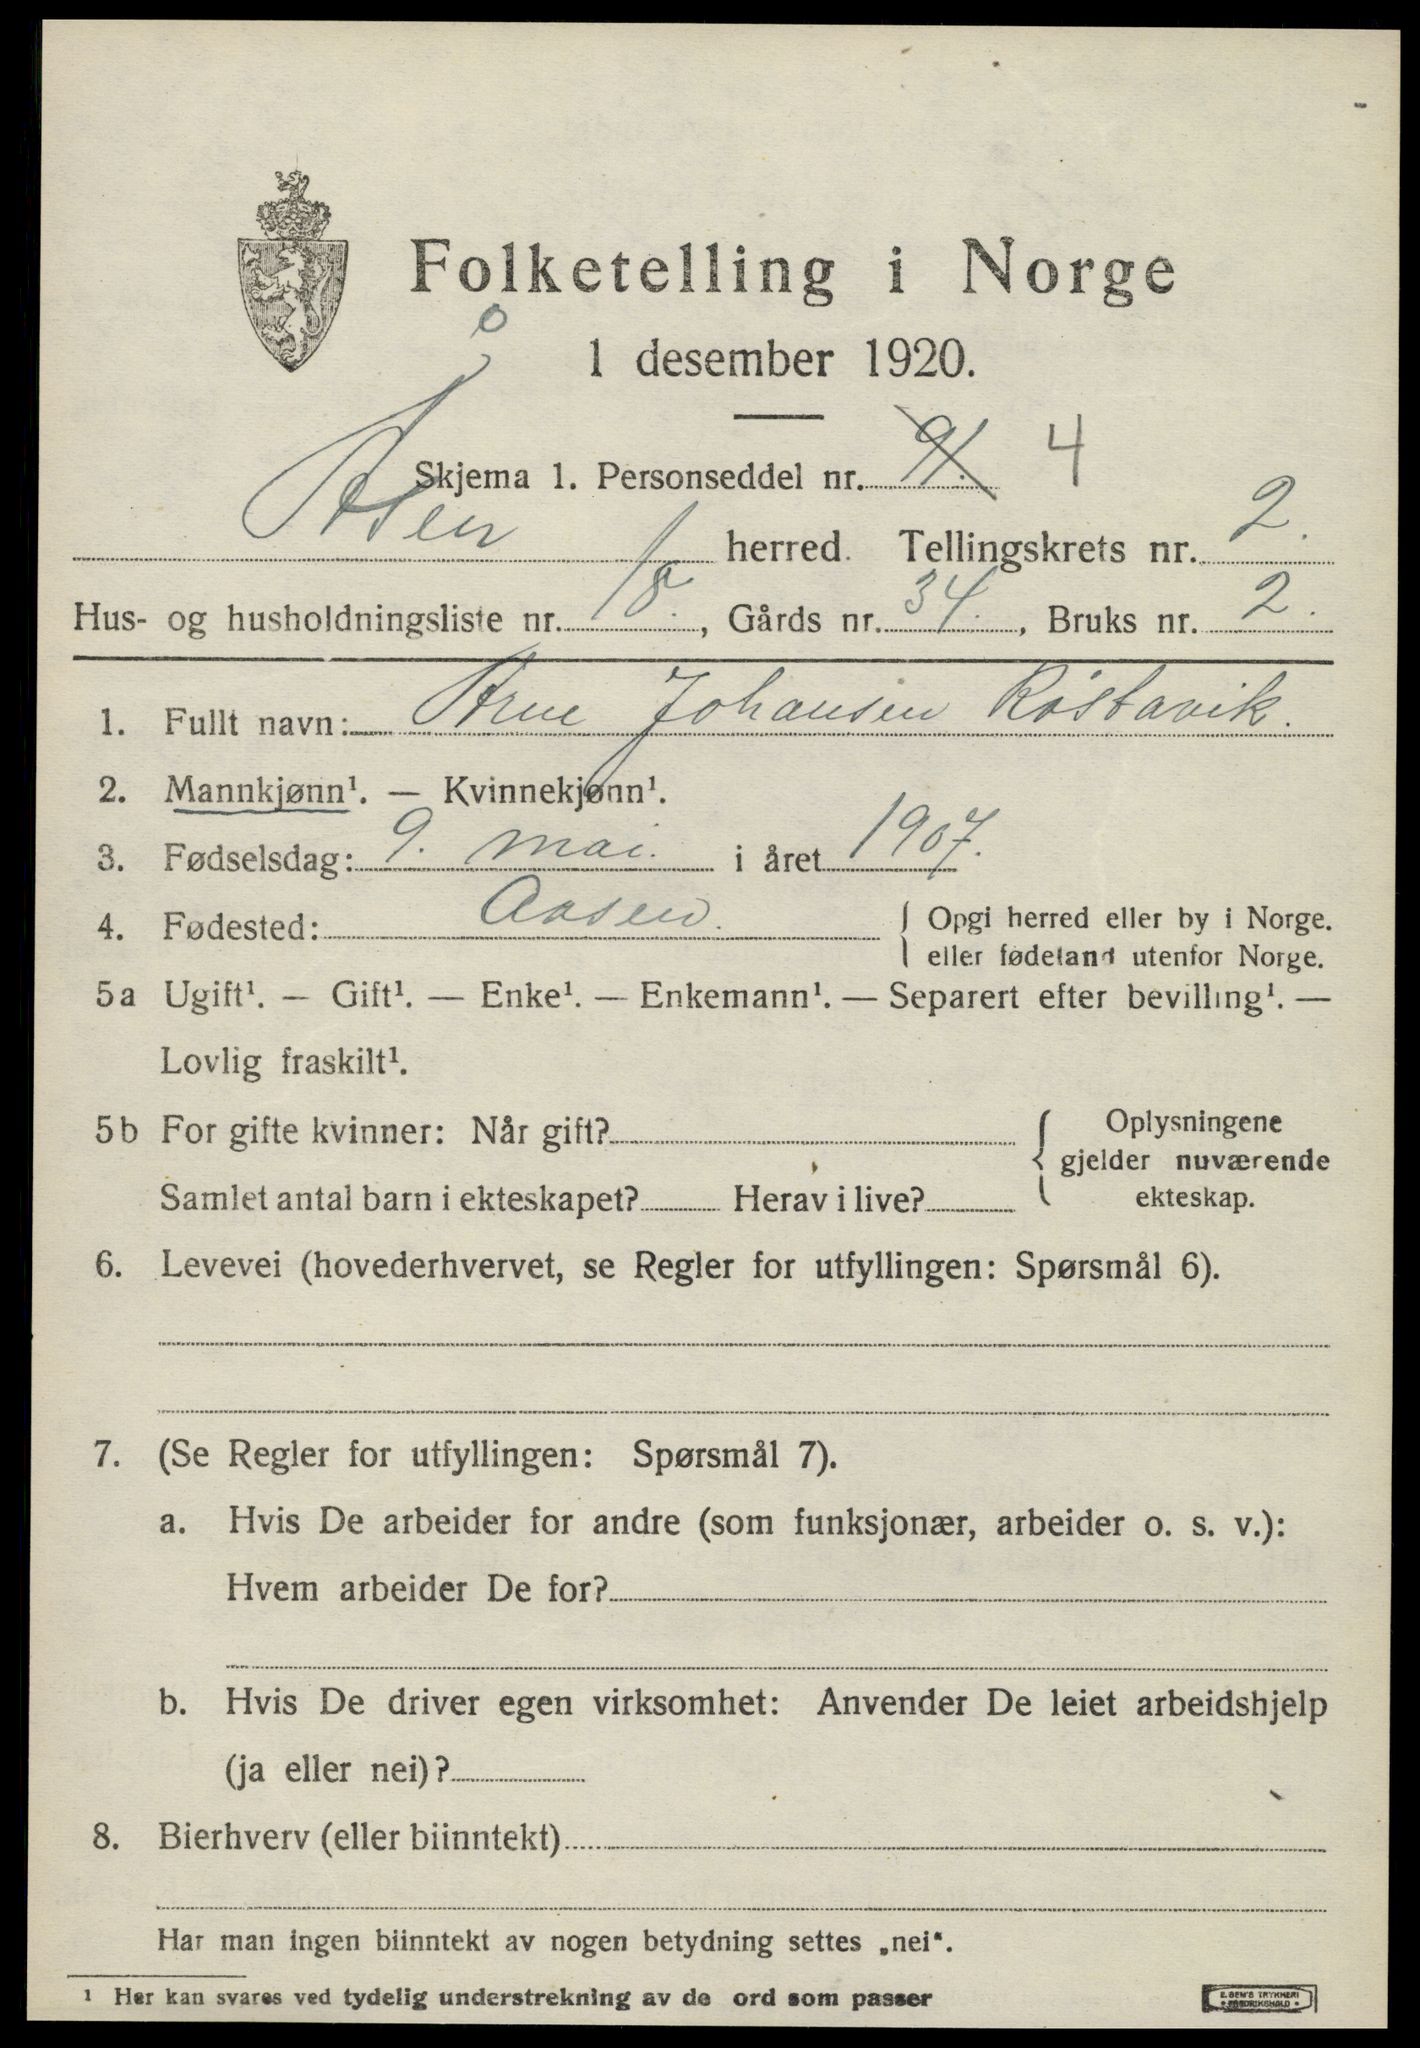 Folketelling i Norge
1 desember 1920.
Skjema 1. Personseddel nr. 91. 4
Åsen herred. Tellingskrets nr. 2.
Hus- og husholdningsliste nr. 18., Gårds nr. 34., Bruks nr. 2.
1. Fullt navn: Arne Johansen Röstavik.
2. Mannkjønn¹. — Kvinnekjønn¹.
3. Fødselsdag: 9. mai. i året 1907.
4. Fødested: Aasen. { Opgi herred eller by i Norge.
eller fødeland utenfor Norge.
5a Ugift¹. — Gift¹. — Enke¹. — Enkemann¹. — Separert efter bevilling¹. —
Lovlig fraskilt¹.
5b For gifte kvinner: Når gift? { Oplysningene
gjelder nuværende
Samlet antal barn i ekteskapet? Herav i live? ekteskap.
6. Levevei (hovederhvervet, se Regler for utfyllingen: Spørsmål 6).
7. (Se Regler for utfyllingen: Spørsmål 7).
a. Hvis De arbeider for andre (som funksjonær, arbeider o. s. v.):
Hvem arbeider De for?
b. Hvis De driver egen virksomhet: Anvender De leiet arbeidshjelp
(ja eller nei)?
8. Bierhverv (eller biinntekt)
Har man ingen biinntekt av nogen betydning settes „nei“.
¹ Her kan svares ved tydelig understrekning av de ord som passer
E. SEM'S TRYKKERI
• FREDRIKSHALD •